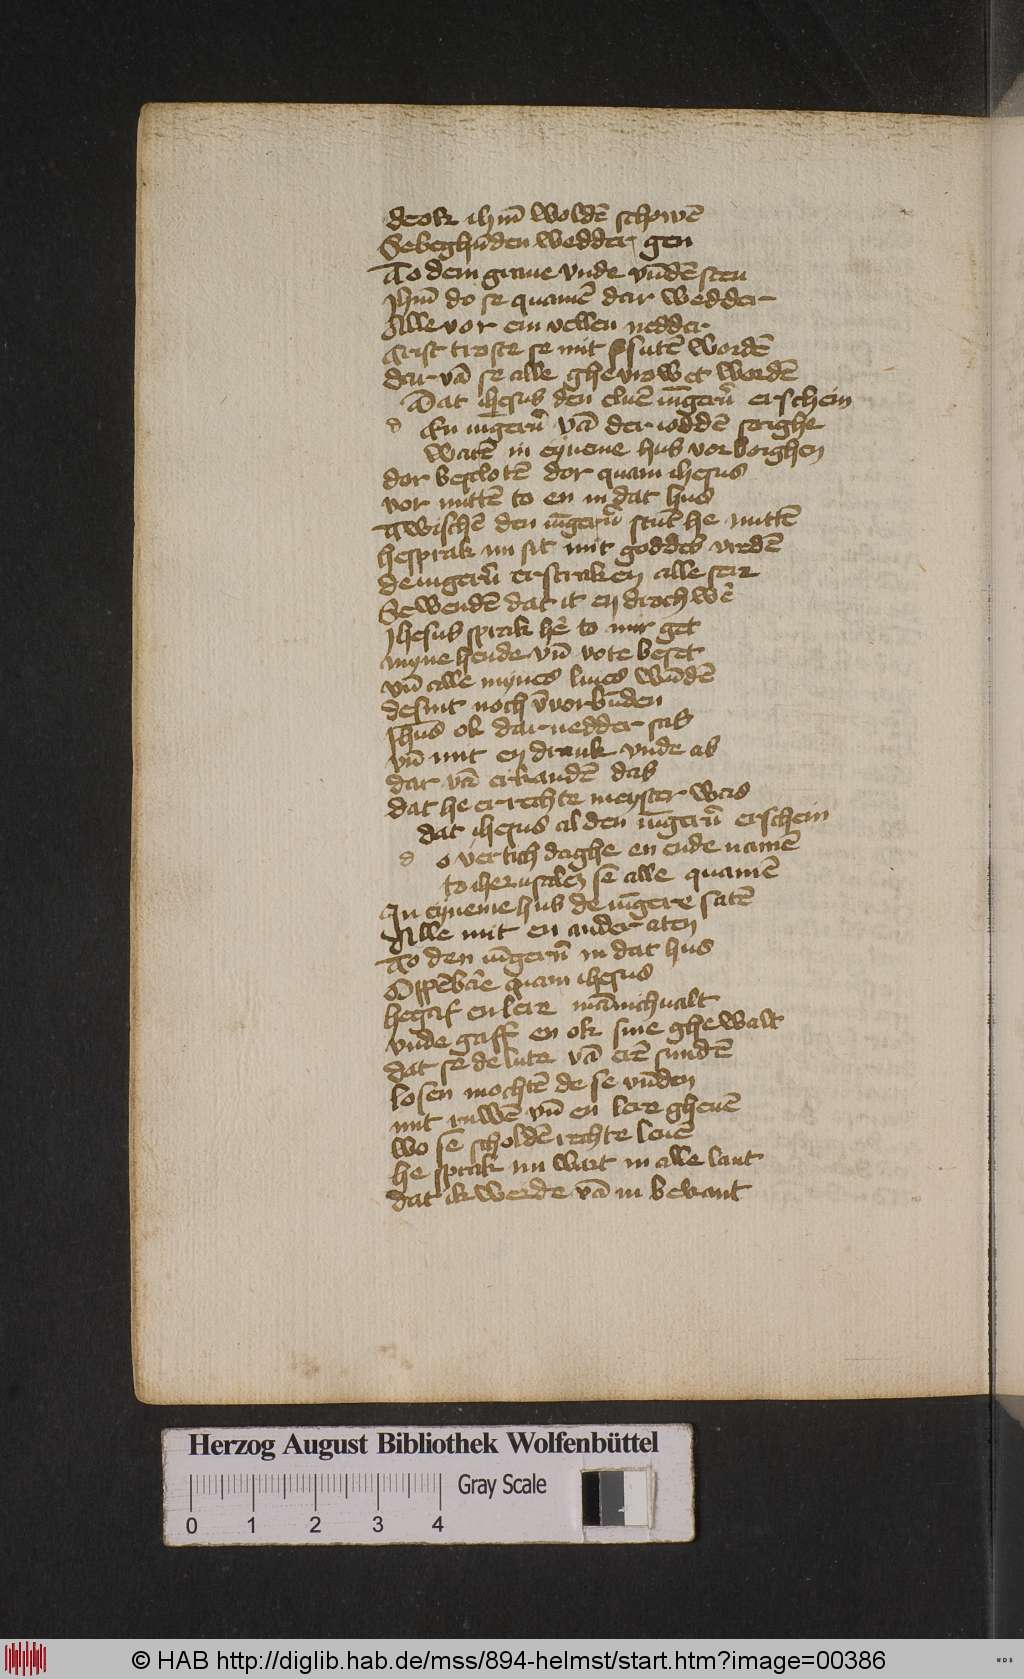 de ok ihm̄ woldē schowē
Se beghūden wedder gen
To dem graue vnde vūdē sten
Jhm̄ do se quamē dar wedder
Alle vor em vellen nedder
Crist troste se mit sutē wordē
dar vā se alle ghevrowet wordē
Dat ihesus den eluē iūgerē erschein
d En iūgerē vā der iodden sorghe
Warē in eyneme hus vorborghen
dor beslotē dor quam ihesus
vor mittē to en in dat hus
Twischē den iūgerē stūt he mittē
he sprak nu sit mit goddes vredē
de iūgerē erscraken alle ser
Se wendē dat it en droch wē
Jhesus sprak hē to mir get
myne hende vn̄ vote beset
vn̄ alle mynes liues wūdē
de sint noch vvorbūden
Jhūs ok dar nedder sas
vn̄ mit en drank vnde as
dar vā erkandē das
dat he er rechte meyster was
dat ihesus al den iūgerē erschein
d o vertich daghe en ende namē
to iherusalem se alle quamē
In eyneme hus de iūgere satē
Alle mit en ander aten
To den iūgerē in dat hus
Oppēbare quam ihesus
he gaf en lere mānichualt
vnde gaff en ok sine ghewalt
dat se de lute vā erē sundē
losen mochtē de se vūden
mit ruwē vn̄ en lere gheuē
wo se scholdē rechte leuē
he sprak nu wart in alle lant
dat ik werde vā iu bekant
Herzog August Bibliothek Wolfenbüttel
Gray Scale
0 1 2 3 4
© HAB http://diglib.hab.de/mss/894-helmst/start.htm?image=00386